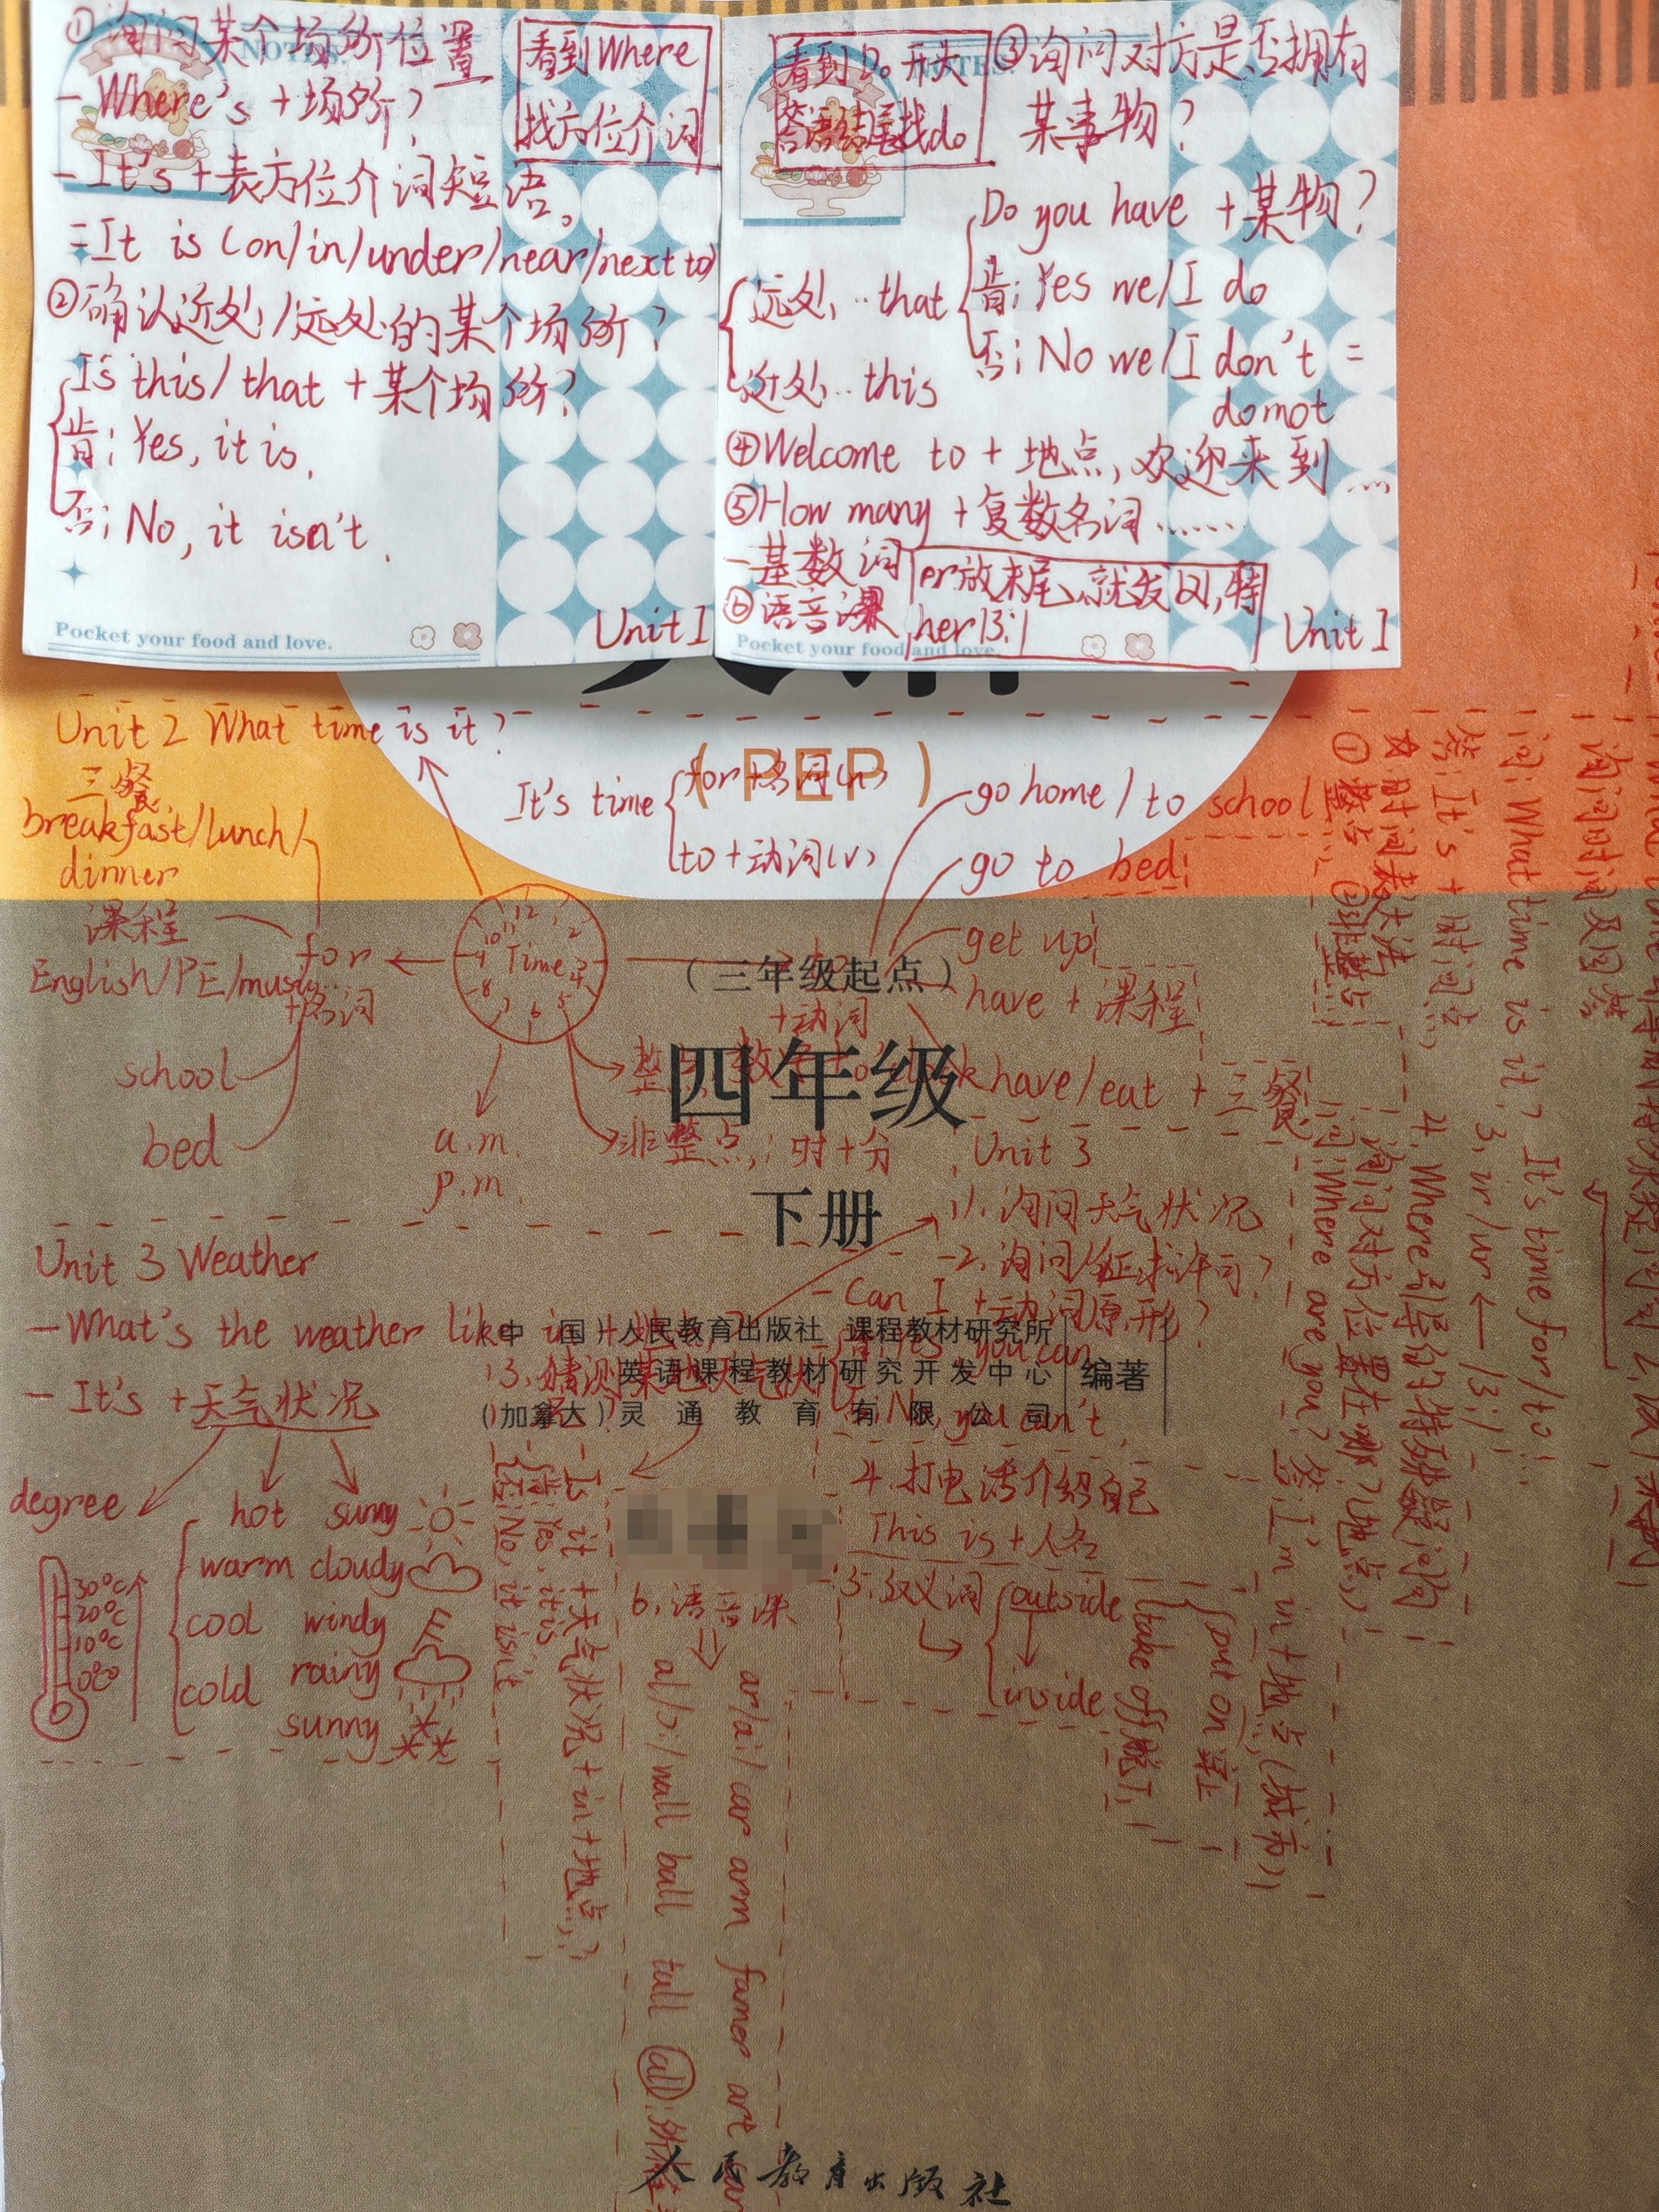 ①询问某个场所位置
- Where's + 场所?
- It's + 表方位介词短语。
= It is (on/in/under/near/next to)
②确认近处/远处的某个场所?
Is this/ that + 某个场所?
肯: Yes, it is.
否: No, it isn't.
看到Where
找方位介词
Pocket your food and love.
Unit 1
NOTES.
看到Do开头
答语结尾找do
③询问对方是否拥有
某事物?
Do you have + 某物?
肯: Yes we/I do
否: No we/I don't =
do not
远处...that
近处...this
④Welcome to + 地点, 欢迎来到......
⑤How many + 复数名词......
- 基数词
⑥语音课
er放末尾,就发
Pocket your food and love.
Unit 1
(PEP)
Unit 2 What time is it?
三餐
breakfast/lunch/
dinner
课程
English/PE/music...
for
+名词
school
bed
Time
a.m.
p.m.
It's time
for+名词(n)
to + 动词(v)
go home / to school
go to bed
get up
have + 课程
have/eat + 三餐
+动词
非整点: 时+分
(三年级起点)
四年级
下册
中 国 人民教育出版社 课程教材研究所
英语课程教材研究开发中心
(加拿大) 灵通教育有限公司
编著
Unit 3 Weather
- What's the weather like in + 地
- It's + 天气状况
degree
30°C
20°C
10°C
0°C
hot
warm
cool
cold
sunny
cloudy
windy
rainy
sunny
Unit 3
1. 询问天气状况
2. 询问/征求许可?
- Can I + 动词原形?
Yes, you can
No, you can't.
3. 猜测某地天气状况
- Is it + 天气状况 + in + 地点...?
肯: Yes, it is
否: No, it isn't
4. 打电话介绍自己
This is + 人名
5.
outside
inside
put on 穿上
take off 脱下
6. 语音课
ar/a:/ car arm
al/ɔ:/ wall ball tall all
询问时间及回答
问: What time is it?
答: It's + 时间点
①整点 ②非整点
It's time for/to...
3. ir/ur ← /ɜ:/
4. Where引导的特殊疑问句
询问对方位置在哪?(地点)
问: Where are you? 答: I'm in + 地点(城市)
人民教育出版社